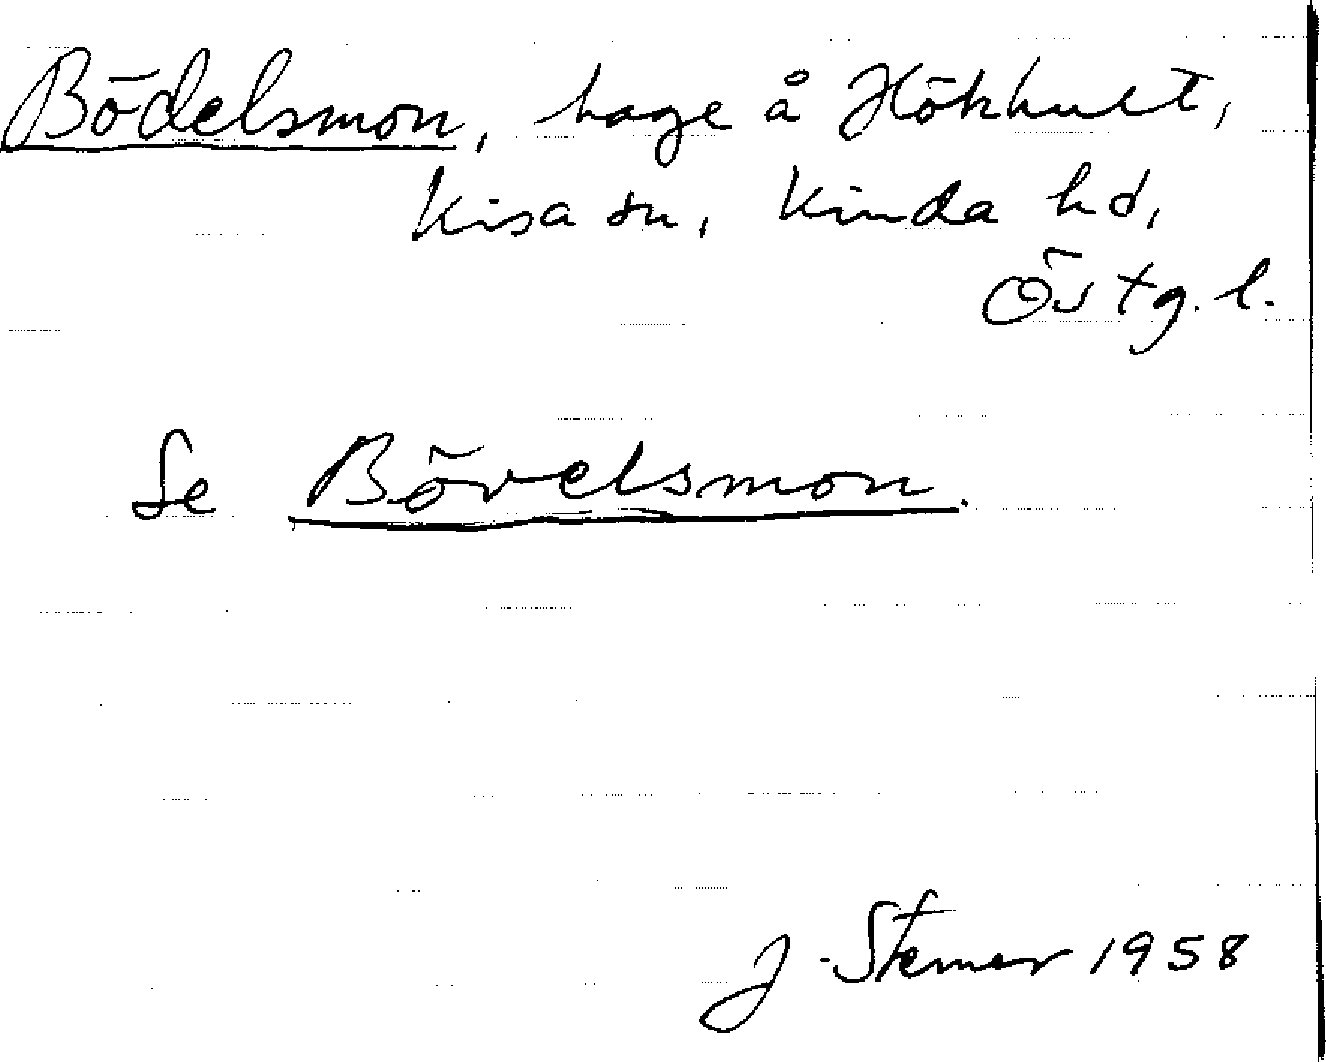 Bödelsmon, hage å Hökhult,
Kisa sn, Kinda hd,
Östg. l.
Se Bövelsmon.
J. Stemar 1958